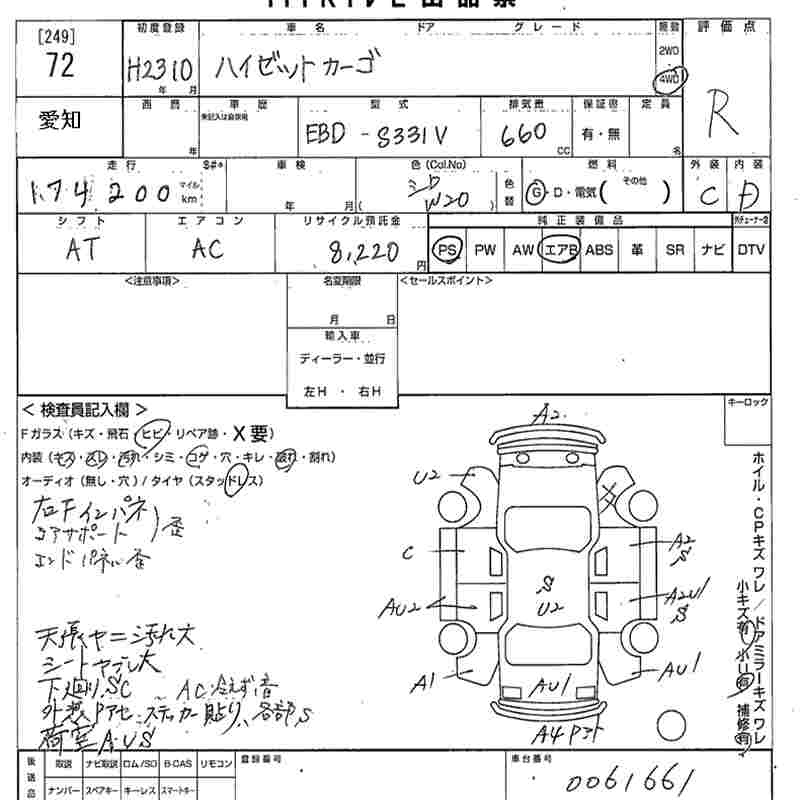 [249]
72
初度登録
H23 10
年 月
車名 ドア グレード
ハイゼットカーゴ
駆動
2WD
4WD
評価点
R
愛知
西暦 年
車歴
型式
EBD - S331V
排気量
660
CC
保証書
有・無
定員
名
走行 S#*
174200
マイル
km
車検
年 月
色 (Col.No)
W20
色替
燃料
G・D・電気( その他 )
外装
C
内装
D
シフト
AT
エアコン
AC
リサイクル預託金
8,220
円
純正装備品
PS PW AW エアB ABS 革 SR ナビ DTV
<注意事項>
名変期限
月 日
輸入車
ディーラー・並行
左H ・ 右H
<セールスポイント>
キーロック
< 検査員記入欄 >
Fガラス (キズ・飛石・ヒビ・リペア跡・X要)
内装 (キズ・スレ・汚れ・シミ・コゲ・穴・キレ・破れ・割れ)
オーディオ (無し・穴) / タイヤ (スタッドレス)
右Fインパネ
コアサポート 歪
エンドパネル歪
天張ヤニ汚れ大
シートヤブレ大
下廻り.SC AC冷えず音
外装Pアセ.ステッカー貼り.各部S
荷室A.US
A2
U2
C
AU2
A1
S
U2
AU1
A4
A2
S
A2U1
S
AU1
ホイル・CPキズワレ/ドアミラーキズワレ
小キズ有 小U有 補修有
後送品
取説 ナビ取説 ロム/SD B-CAS リモコン
ナンバー スペアキー キーレス スマートキー
登録番号
車台番号
0061661